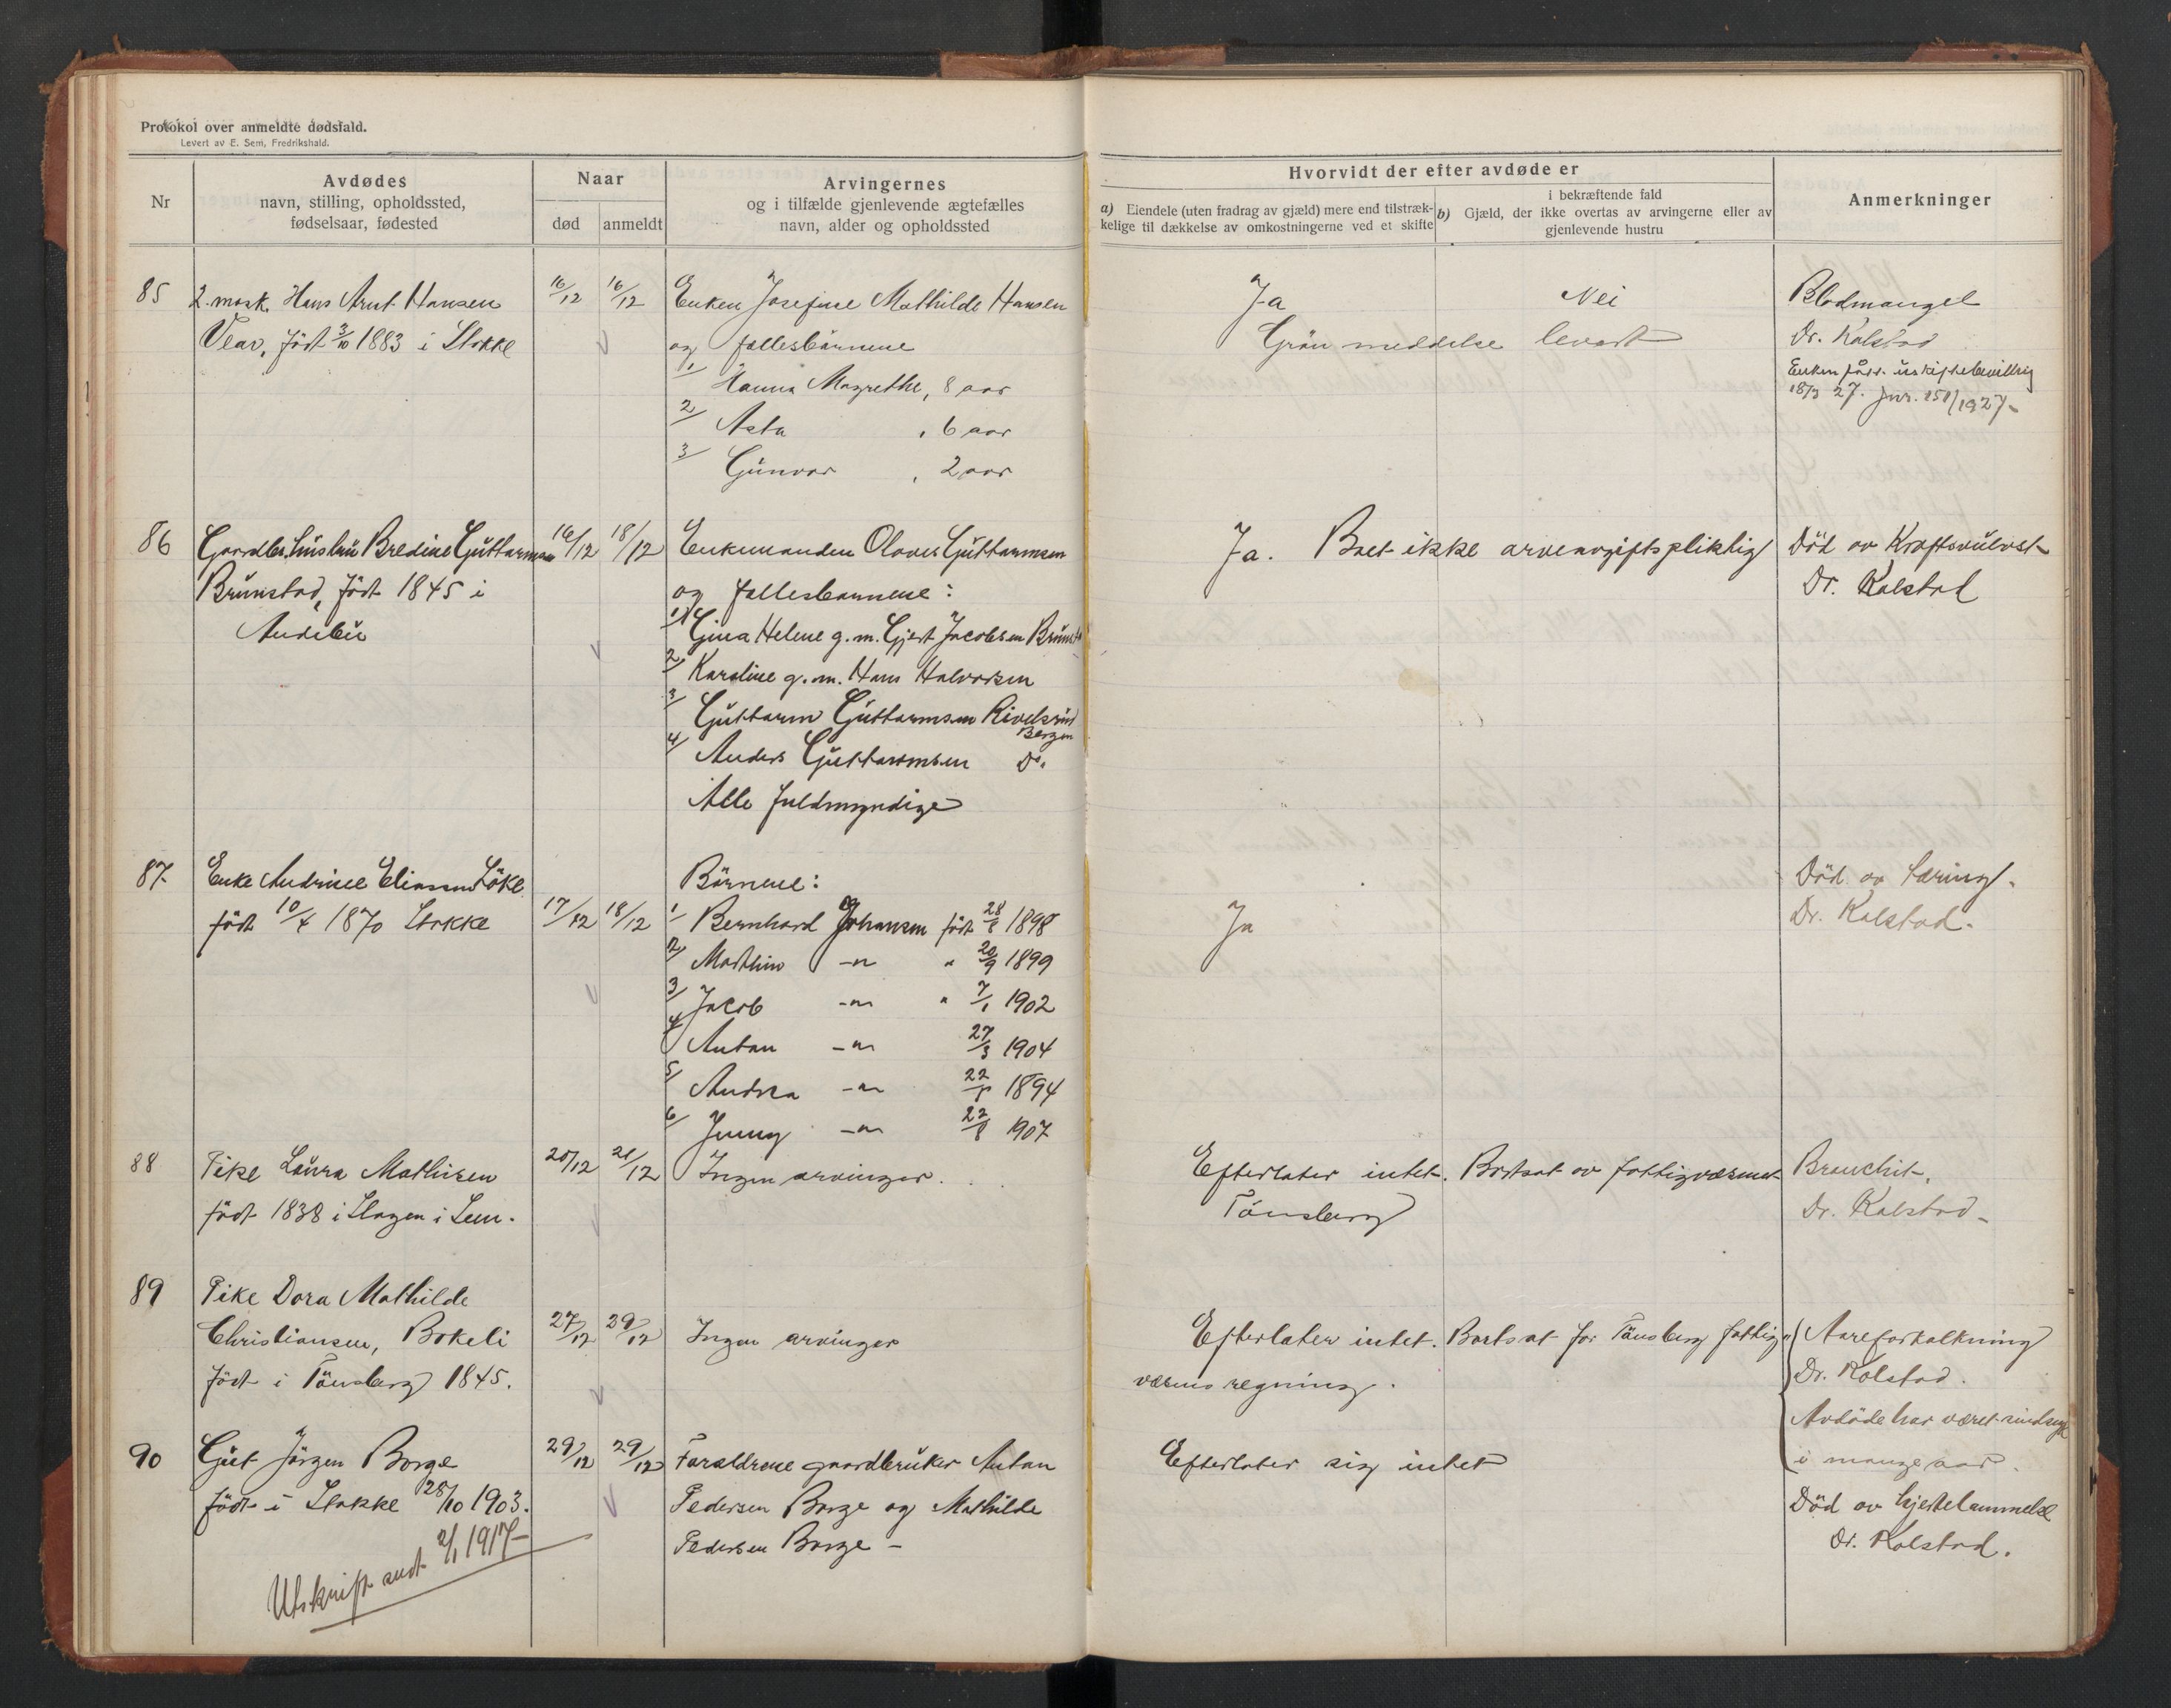 Protokol over anmeldte dødsfald.
Levert av E. Sem, Fredrikshald.
Nr
Avdødes
navn, stilling, opholdssted,
fødselsaar, fødested
Naar
død
anmeldt
Arvingernes
og i tilfælde gjenlevende ægtefælles
navn, alder og opholdssted
Hvorvidt der efter avdøde er
a) Eiendele (uten fradrag av gjæld) mere end tilstræk-
kelige til dækkelse av omkostningerne ved et skifte
i bekræftende fald
b) Gjæld, der ikke overtas av arvingerne eller av
gjenlevende hustru
Anmerkninger
85
2. mask. Hans Arnt Hansen
Vear, födt 3/10 1883 i Stokke
16/12 16/12
Enken Josefine Mathilde Hansen
og fællesbarnene
1/ Hanna Magrethe, 8 aar
2/ Asta , 6 aar
3/ Gunvor , 2 aar
Ja
Nei
Grön meddelse levert
Blodmangel
Dr. Kolstad
18/3 27. Jnr. 151/1927
86
Gaardbr. hustru Bredine Guttormsen
Brunstad, födt 1845 i
Andebu
16/12 18/12
Enkemanden Olaves Guttormsen
og fællesbarnene:
1/ Gina Helene g. m. Gjert Jacobsen Brunstad
2/ Karoline g. m. Hans Halvorsen
3/ Guttorm Guttormsen Rivelsrud
Bergen
4/ Anders Guttormsen Do.
Alle fuldmyndige
Ja. Boet ikke arveavgiftspliktig
Död av Kræftsvulst
Dr. Kolstad
87.
Enke Andrine Eliassen Löke
födt 10/4 1870 Stokke
17/12 18/12
Börnene:
1/ Bernhard Johansen födt 28/8 1898
2/ Mathin -"- " 20/9 1899
3/ Jacob -"- " 7/1 1902
4/ Anton -"- 27/3 1904
5/ Andrea -"- 22/5 1894
6/ Jenny -"- 22/8 1907
Ja
Död av tæring.
Dr. Kolstad.
88
Pike Laura Mathisen
födt 1838 i Slagen i Sem.
20/12 21/12
Ingen arvinger.
Efterlater intet. Bortsat av fattigvæsenet
Tönsberg
Bronchit.
Dr. Kolstad
89
Pike Dora Mathilde
Christiansen, Bokeli
födt i Tönsberg 1845.
27/12 29/12
Ingen arvinger
Efterlater intet. Bortsat for Tönsberg fattig-
væsens regning.
Aareforkalkning
Dr. Kolstad.
Avdöde har været sindssyk
i mange aar.
90
Gut Jörgen Borge
födt i Stokke 28/10 1903.
29/12 29/12
Forældrene gaardbruker Anton
Pedersen Borge og Mathilde
Pedersen Borge
Efterlater sig intet
Död av hjertelammelse
Dr. Kolstad.
Utskrift sendt 2/1 1917